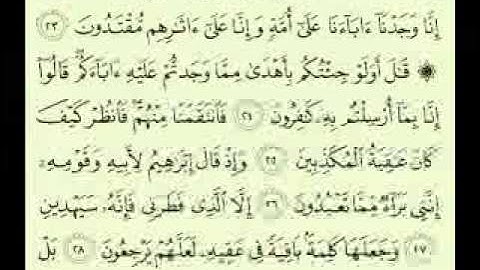 إِنَّا وَجَدْنَآ ءَابَآءَنَا عَلَىٰٓ أُمَّةٍ وَإِنَّا عَلَىٰٓ ءَاثَـٰرِهِم مُّقْتَدُونَ ٢٣
۞ قَـٰلَ أَوَلَوْ جِئْتُكُم بِأَهْدَىٰ مِمَّا وَجَدتُّمْ عَلَيْهِ ءَابَآءَكُمْ ۖ قَالُوٓا۟
إِنَّا بِمَآ أُرْسِلْتُم بِهِۦ كَـٰفِرُونَ ٢٤ فَٱنتَقَمْنَا مِنْهُمْ ۖ فَٱنظُرْ كَيْفَ
كَانَ عَـٰقِبَةُ ٱلْمُكَذِّبِينَ ٢٥ وَإِذْ قَالَ إِبْرَٰهِيمُ لِأَبِيهِ وَقَوْمِهِۦٓ
إِنَّنِى بَرَآءٌ مِّمَّا تَعْبُدُونَ ٢٦ إِلَّا ٱلَّذِى فَطَرَنِى فَإِنَّهُۥ سَيَهْدِينِ
٢٧ وَجَعَلَهَا كَلِمَةًۢ بَاقِيَةً فِى عَقِبِهِۦ لَعَلَّهُمْ يَرْجِعُونَ ٢٨ بَلْ